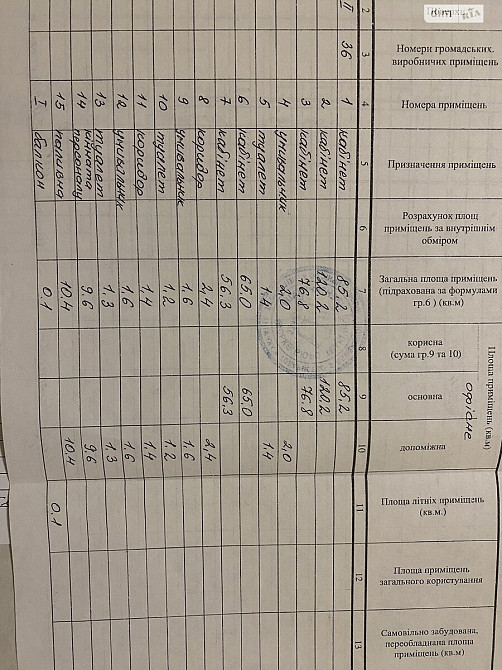 2
3
Номери громадських.
виробничих приміщень
4
Номера приміщень
5
Призначення приміщень
6
Розрахунок площ
приміщень за внутрішнім
обміром
7
Загальна площа приміщень
(підрахована за формулами
гр.6 ) (кв.м)
Площа приміщень (кв.м)
офісне
8
корисна
(сума гр.9 та 10)
9
основна
10
допоміжна
11
Площа літніх приміщень
(кв.м.)
12
Площа приміщень
загального користування
13
Самовільно забудована,
переобладнана площа
приміщень (кв.м)
II 36 1 кабінет 85.2 85.2
2 кабінет 120.2 120.2
3 кабінет 76.8 76.8
4 умивальник 2,0 2,0
5 туалет 1.4 1.4
6 кабінет 65.0 65.0
7 кабінет 56,3 56.3
8 коридор 2,4 2,4
9 умивальник 1.6 1.6
10 туалет 1.2 1.2
11 коридор 1.4 1.4
12 умивальник 1.6 1.6
13 туалет 1.3 1.3
14 кімната персоналу 9.6 9.6
15 паливна 10.4 10.4
I балкон 0.1 0.1